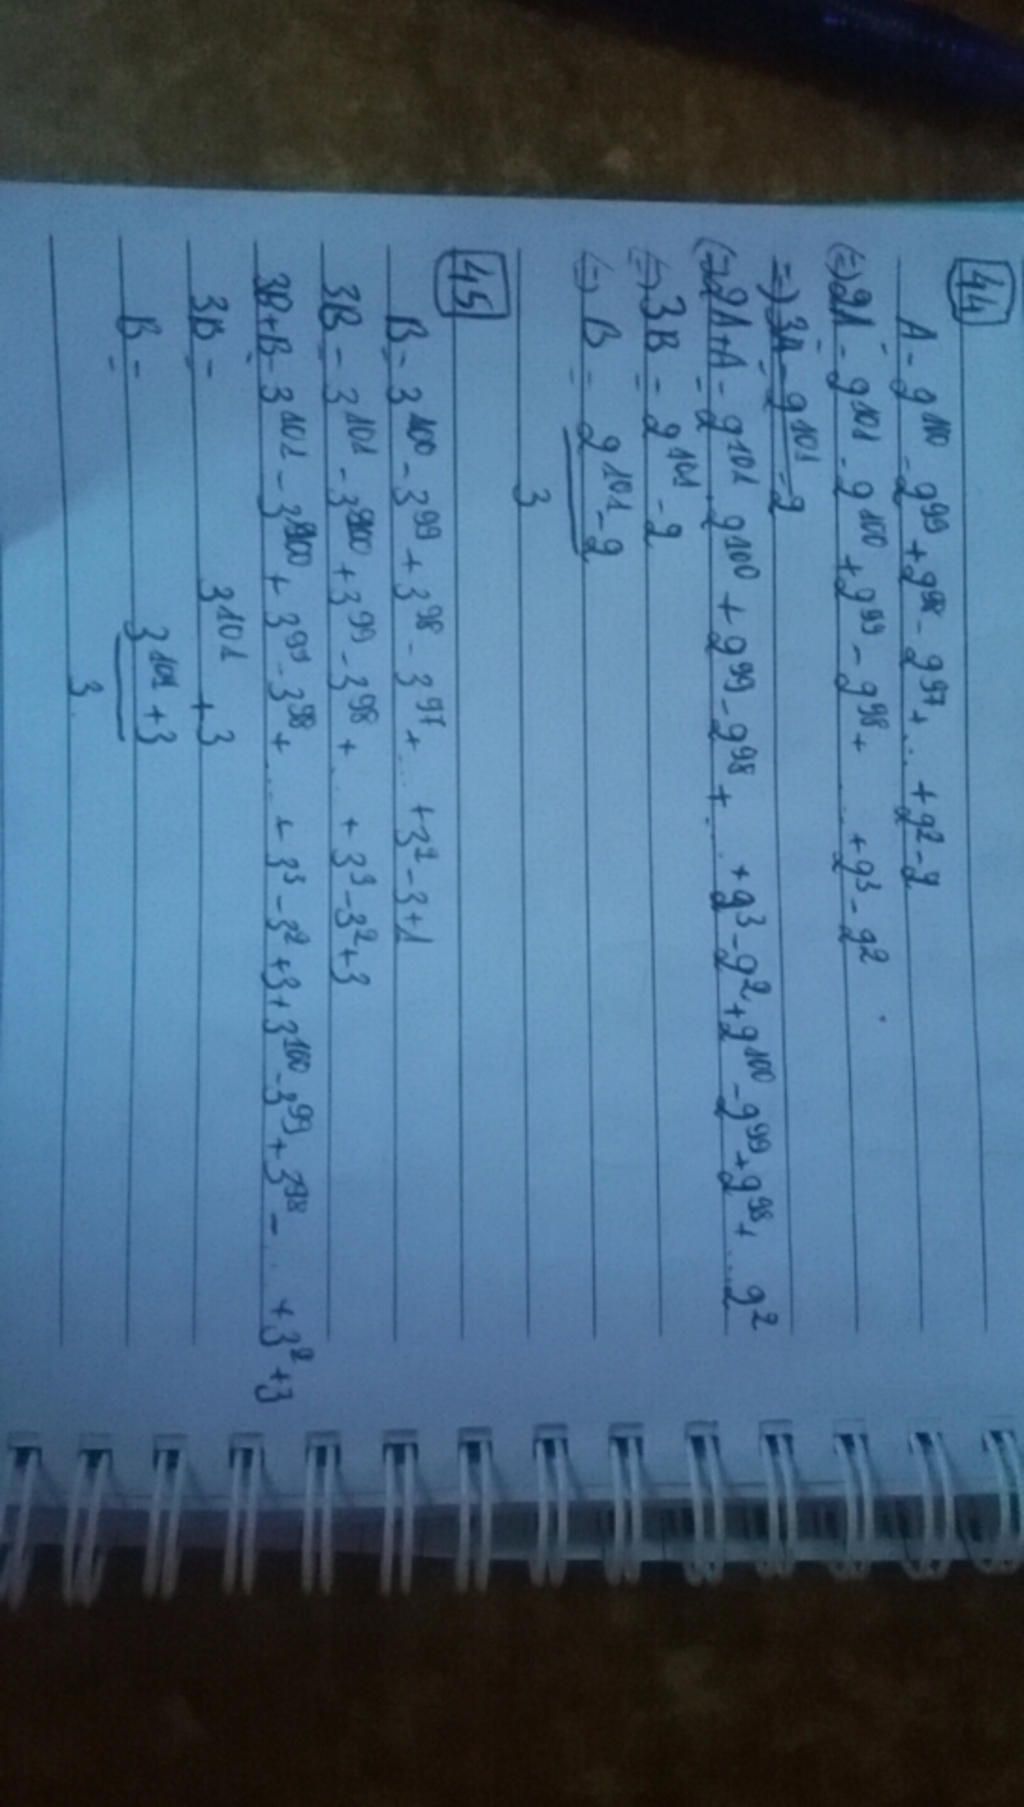 44
A = 2^100 - 2^99 + 2^98 - 2^97 + ... + 2^2 - 2
(=) 2A = 2^101 - 2^100 + 2^99 - 2^98 + ... + 2^3 - 2^2
=) 3A = 2^101 - 2
(=) 2A + A = 2^101 . 2^100 + 2^99 - 2^98 + ... + 2^3 - 2^2 + 2^100 - 2^99 + 2^98 + ... 2^2
(=) 3B = 2^101 - 2
(=) B = 2^101 - 2
3
45
B = 3^100 - 3^99 + 3^98 - 3^97 + ... + 3^2 - 3 + 1
3B = 3^101 - 3^100 + 3^99 - 3^98 + ... + 3^3 - 3^2 + 3
3B + B = 3^101 - 3^100 + 3^99 - 3^98 + ... + 3^3 - 3^2 + 3 + 3^100 - 3^99 + 3^98 - ... + 3^2 + 3
3B = 3^101 + 3
B = 3^101 + 3
3